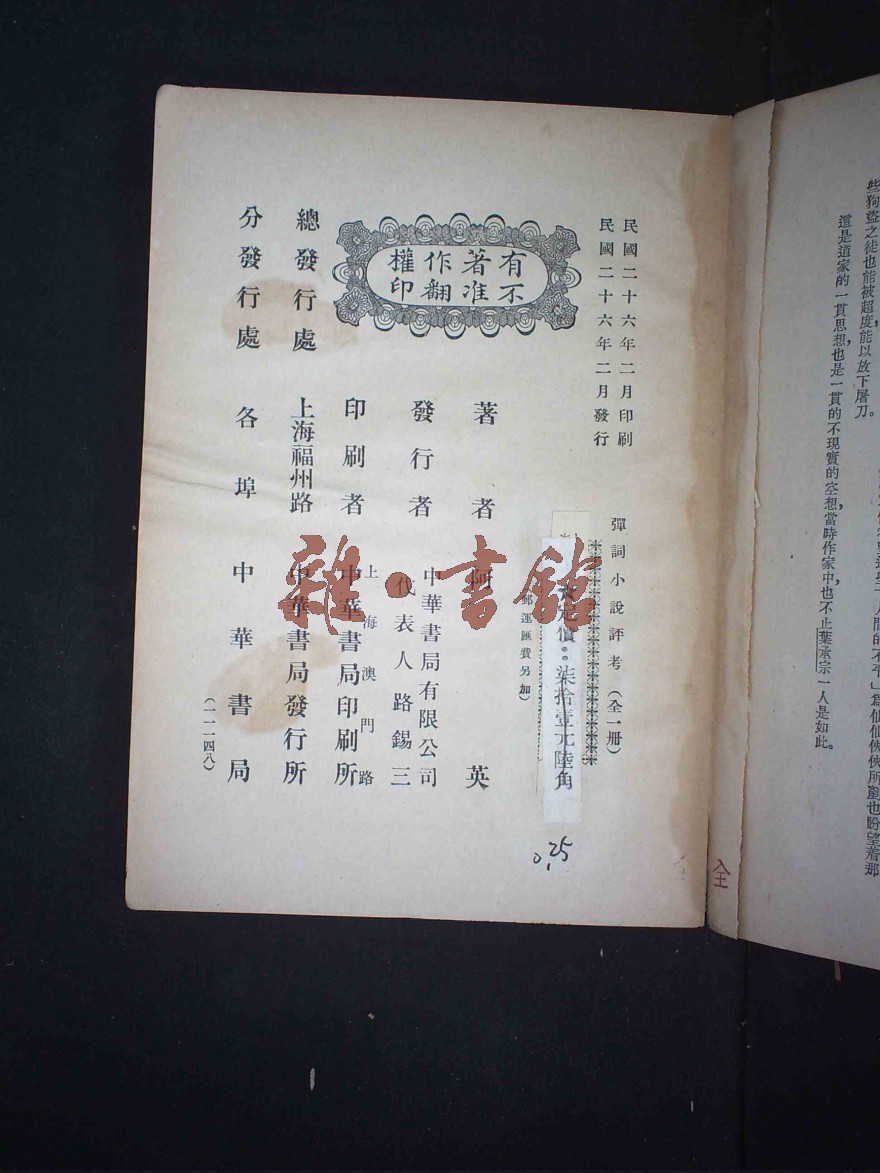 些狗盜之徒也能被超度，能以放下屠刀。
這是道家的一貫思想，也是一貫的不現實的空想，當時作家中也不止葉承宗一人是如此。
民國二十六年二月印刷
民國二十六年二月發行
彈詞小說評考（全一冊）
定價：柒拾壹元陸角
郵運匯費另加）
有著作權
不准翻印
著者 阿英
發行者 中華書局有限公司
代表人路錫三
印刷者 上海澳門路
中華書局印刷所
總發行處 上海福州路 中華書局發行所
分發行處 各埠中華書局
（一一一四八）
0.25
全
雜·書館